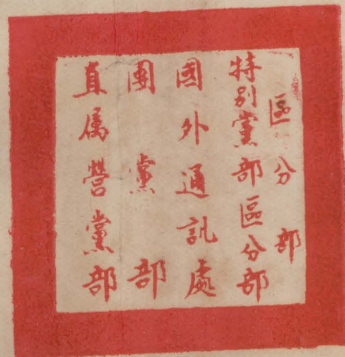 區分部
特別黨部區分部
國外通訊處
團黨部
直属營黨部